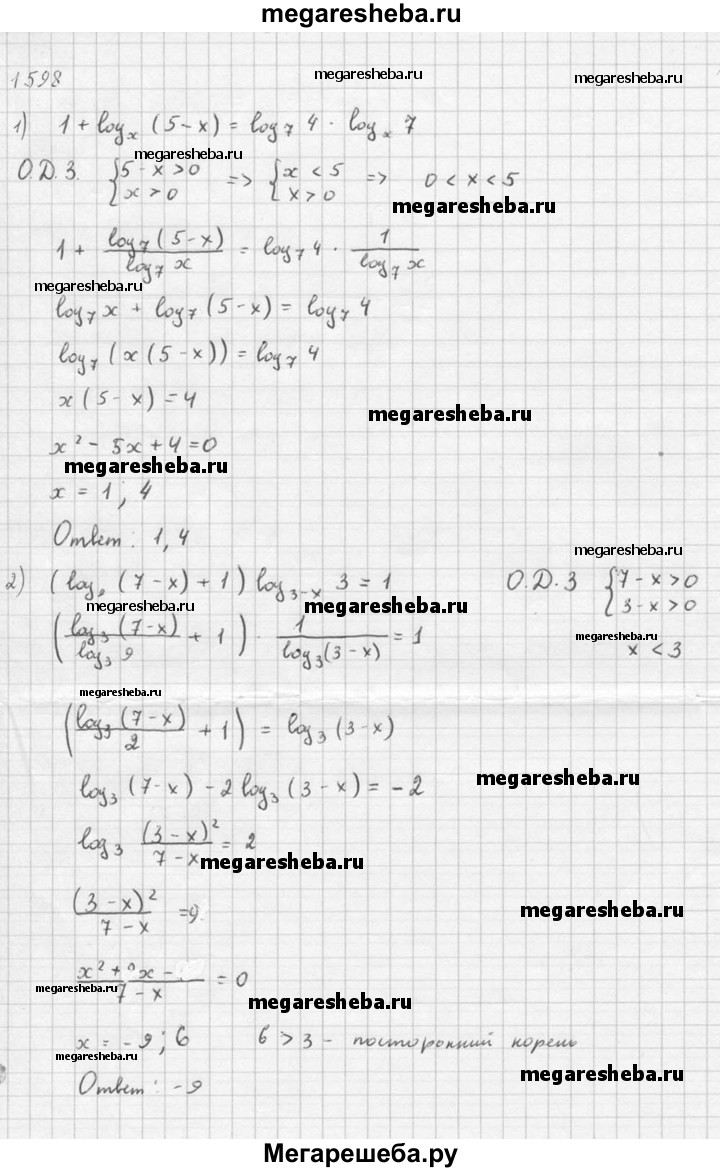 megaresheba.ru
1598
megaresheba.ru
megaresheba.ru
1) 1 + log_x (5 - x) = log_7 4 · log_x 7
megaresheba.ru
О.Д.З. { 5 - x > 0 => { x < 5 => 0 < x < 5
x > 0 x > 0
megaresheba.ru
1 + log_7 (5 - x) / log_7 x = log_7 4 · 1 / log_7 x
megaresheba.ru
log_7 x + log_7 (5 - x) = log_7 4
log_7 (x (5 - x)) = log_7 4
x (5 - x) = 4
megaresheba.ru
x² - 5x + 4 = 0
megaresheba.ru
x = 1; 4
Ответ: 1, 4
megaresheba.ru
2) (log_9 (7 - x) + 1) log_{3-x} 3 = 1 О.Д.З { 7 - x > 0
3 - x > 0
megaresheba.ru
megaresheba.ru
megaresheba.ru
(log_3 (7 - x) / log_3 9 + 1) · 1 / log_3 (3 - x) = 1 x < 3
megaresheba.ru
(log_3 (7 - x) / 2 + 1) = log_3 (3 - x)
megaresheba.ru
log_3 (7 - x) - 2 log_3 (3 - x) = - 2
log_3 (3 - x)² / 7 - x = 2
megaresheba.ru
(3 - x)² / 7 - x = 9
megaresheba.ru
x² + x - / 7 - x = 0
megaresheba.ru
megaresheba.ru
x = - 9; 6 6 > 3 - посторонний корень
megaresheba.ru
megaresheba.ru
Ответ: -9
Мегарешеба.ру